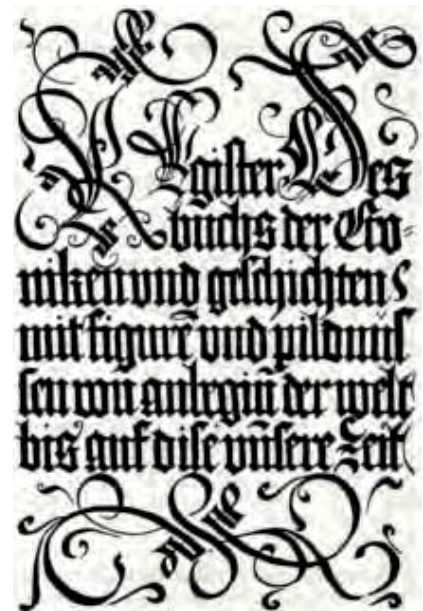 Register Des
buchs der Cro=
niken und geschichten
mit figurē und pildnus
sen von anbegiñ der welt
bis auf dise unsere Zeit